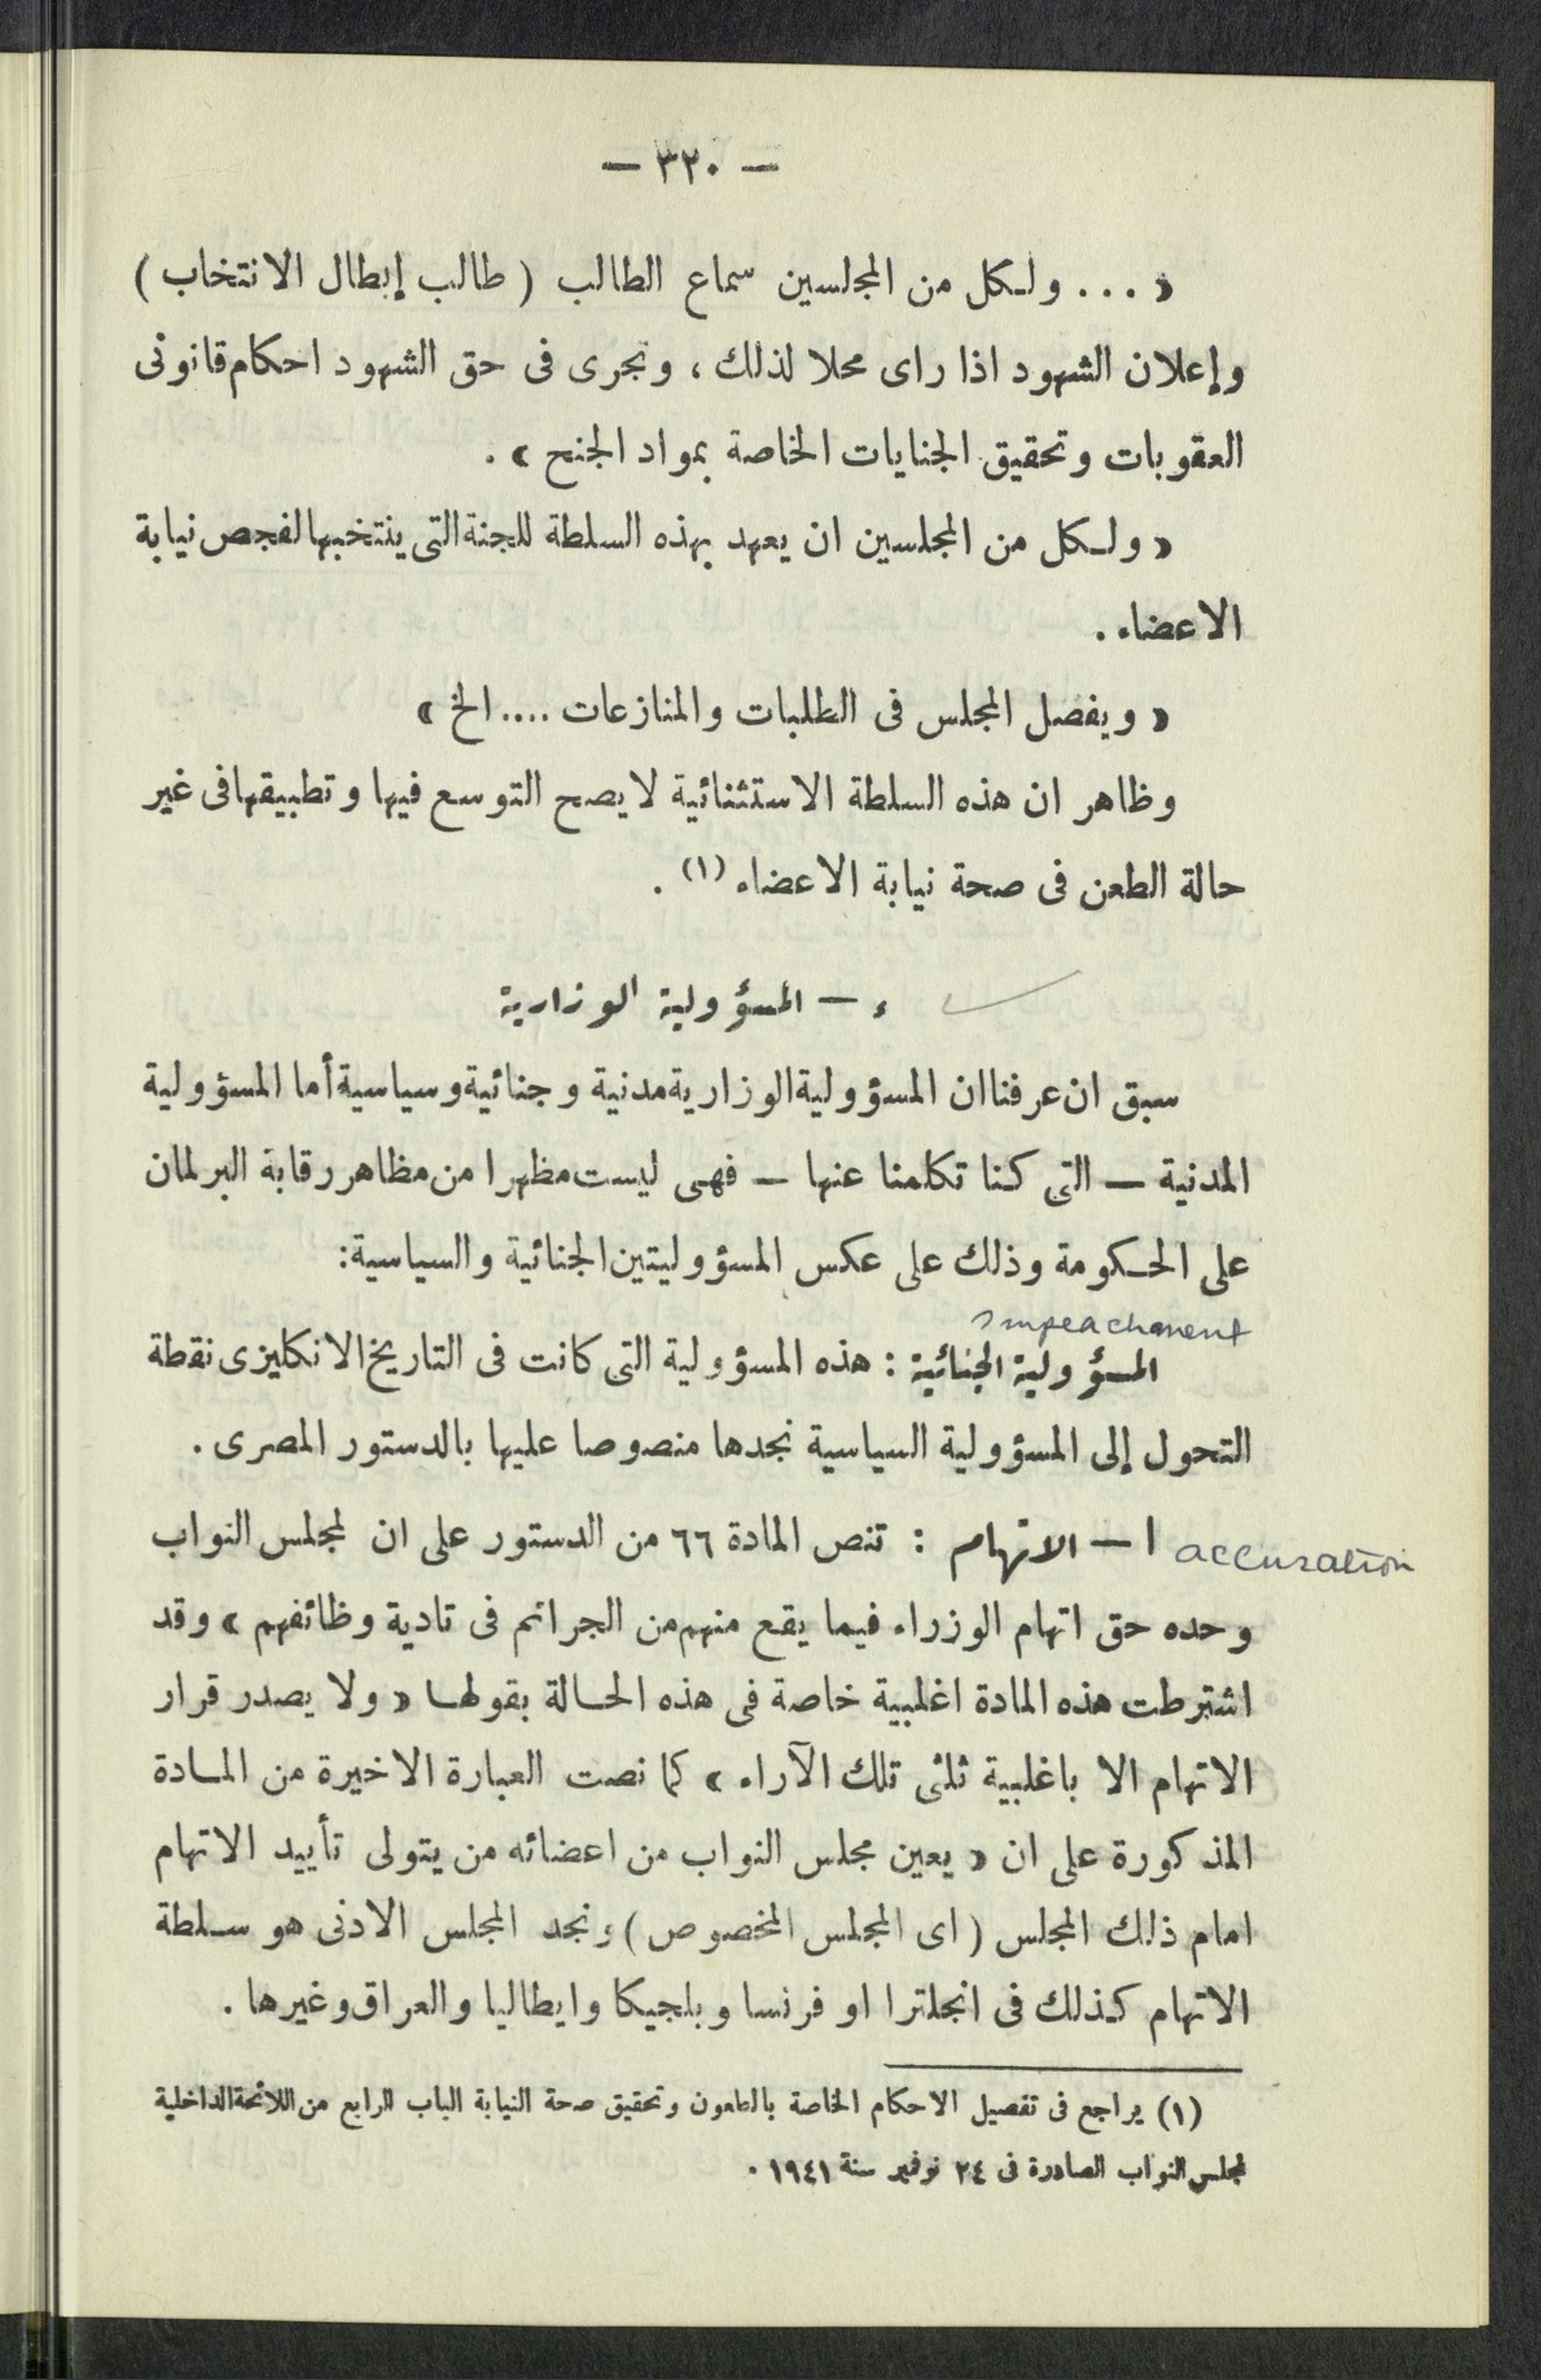 — ٣٢٠ —
« ... ولكل من المجلسين سماع الطالب ( طالب إبطال الانتخاب )
وإعلان الشهود اذا راى محلا لذلك ، وتجرى فى حق الشهود احكام قانونى
العقوبات وتحقيق الجنايات الخاصة بمواد الجنح » .
« ولكل من المجلسين ان يعهد بهذه السلطة للجنة التى ينتخبها لفحص نيابة
الاعضاء .
« ويفصل المجلس فى الطلبات والمنازعات .... الخ »
وظاهر ان هذه السلطة الاستثنائية لا يصح التوسع فيها وتطبيقها فى غير
حالة الطعن فى صحة نيابة الاعضاء (١) .
ء — المسؤولية الوزارية
سبق ان عرفنا ان المسؤولية الوزارية مدنية وجنائية وسياسية أما المسؤولية
المدنية — التى كنا تكلمنا عنها — فهى ليست مظهرا من مظاهر رقابة البرلمان
على الحكومة وذلك على عكس المسؤوليتين الجنائية والسياسية:
Impeachment
المسؤولية الجنائية : هذه المسؤولية التى كانت فى التاريخ الانكليزى نقطة
التحول إلى المسؤولية السياسية نجدها منصوصا عليها بالدستور المصرى .
accusation ا — الاتهام : تنص المادة ٦٦ من الدستور على ان لمجلس النواب
وحده حق اتهام الوزراء فيما يقع منهم من الجرائم فى تادية وظائفهم » وقد
اشترطت هذه المادة اغلبية خاصة فى هذه الحالة بقولها « ولا يصدر قرار
الاتهام الا باغلبية ثلثى تلك الآراء » كما نصت العبارة الاخيرة من المادة
المذكورة على ان « يعين مجلس النواب من اعضائه من يتولى تأييد الاتهام
امام ذلك المجلس ( اى المجلس المخصوص ) ونجد المجلس الادنى هو سلطة
الاتهام كذلك فى انجلترا او فرنسا وبلجيكا وايطاليا والعراق وغيرها .
(١) يراجع فى تفصيل الاحكام الخاصة بالطعون وتحقيق صحة النيابة الباب الرابع من اللائحة الداخلية
لمجلس النواب الصادرة فى ٢٤ نوفمبر سنة ١٩٤١ .